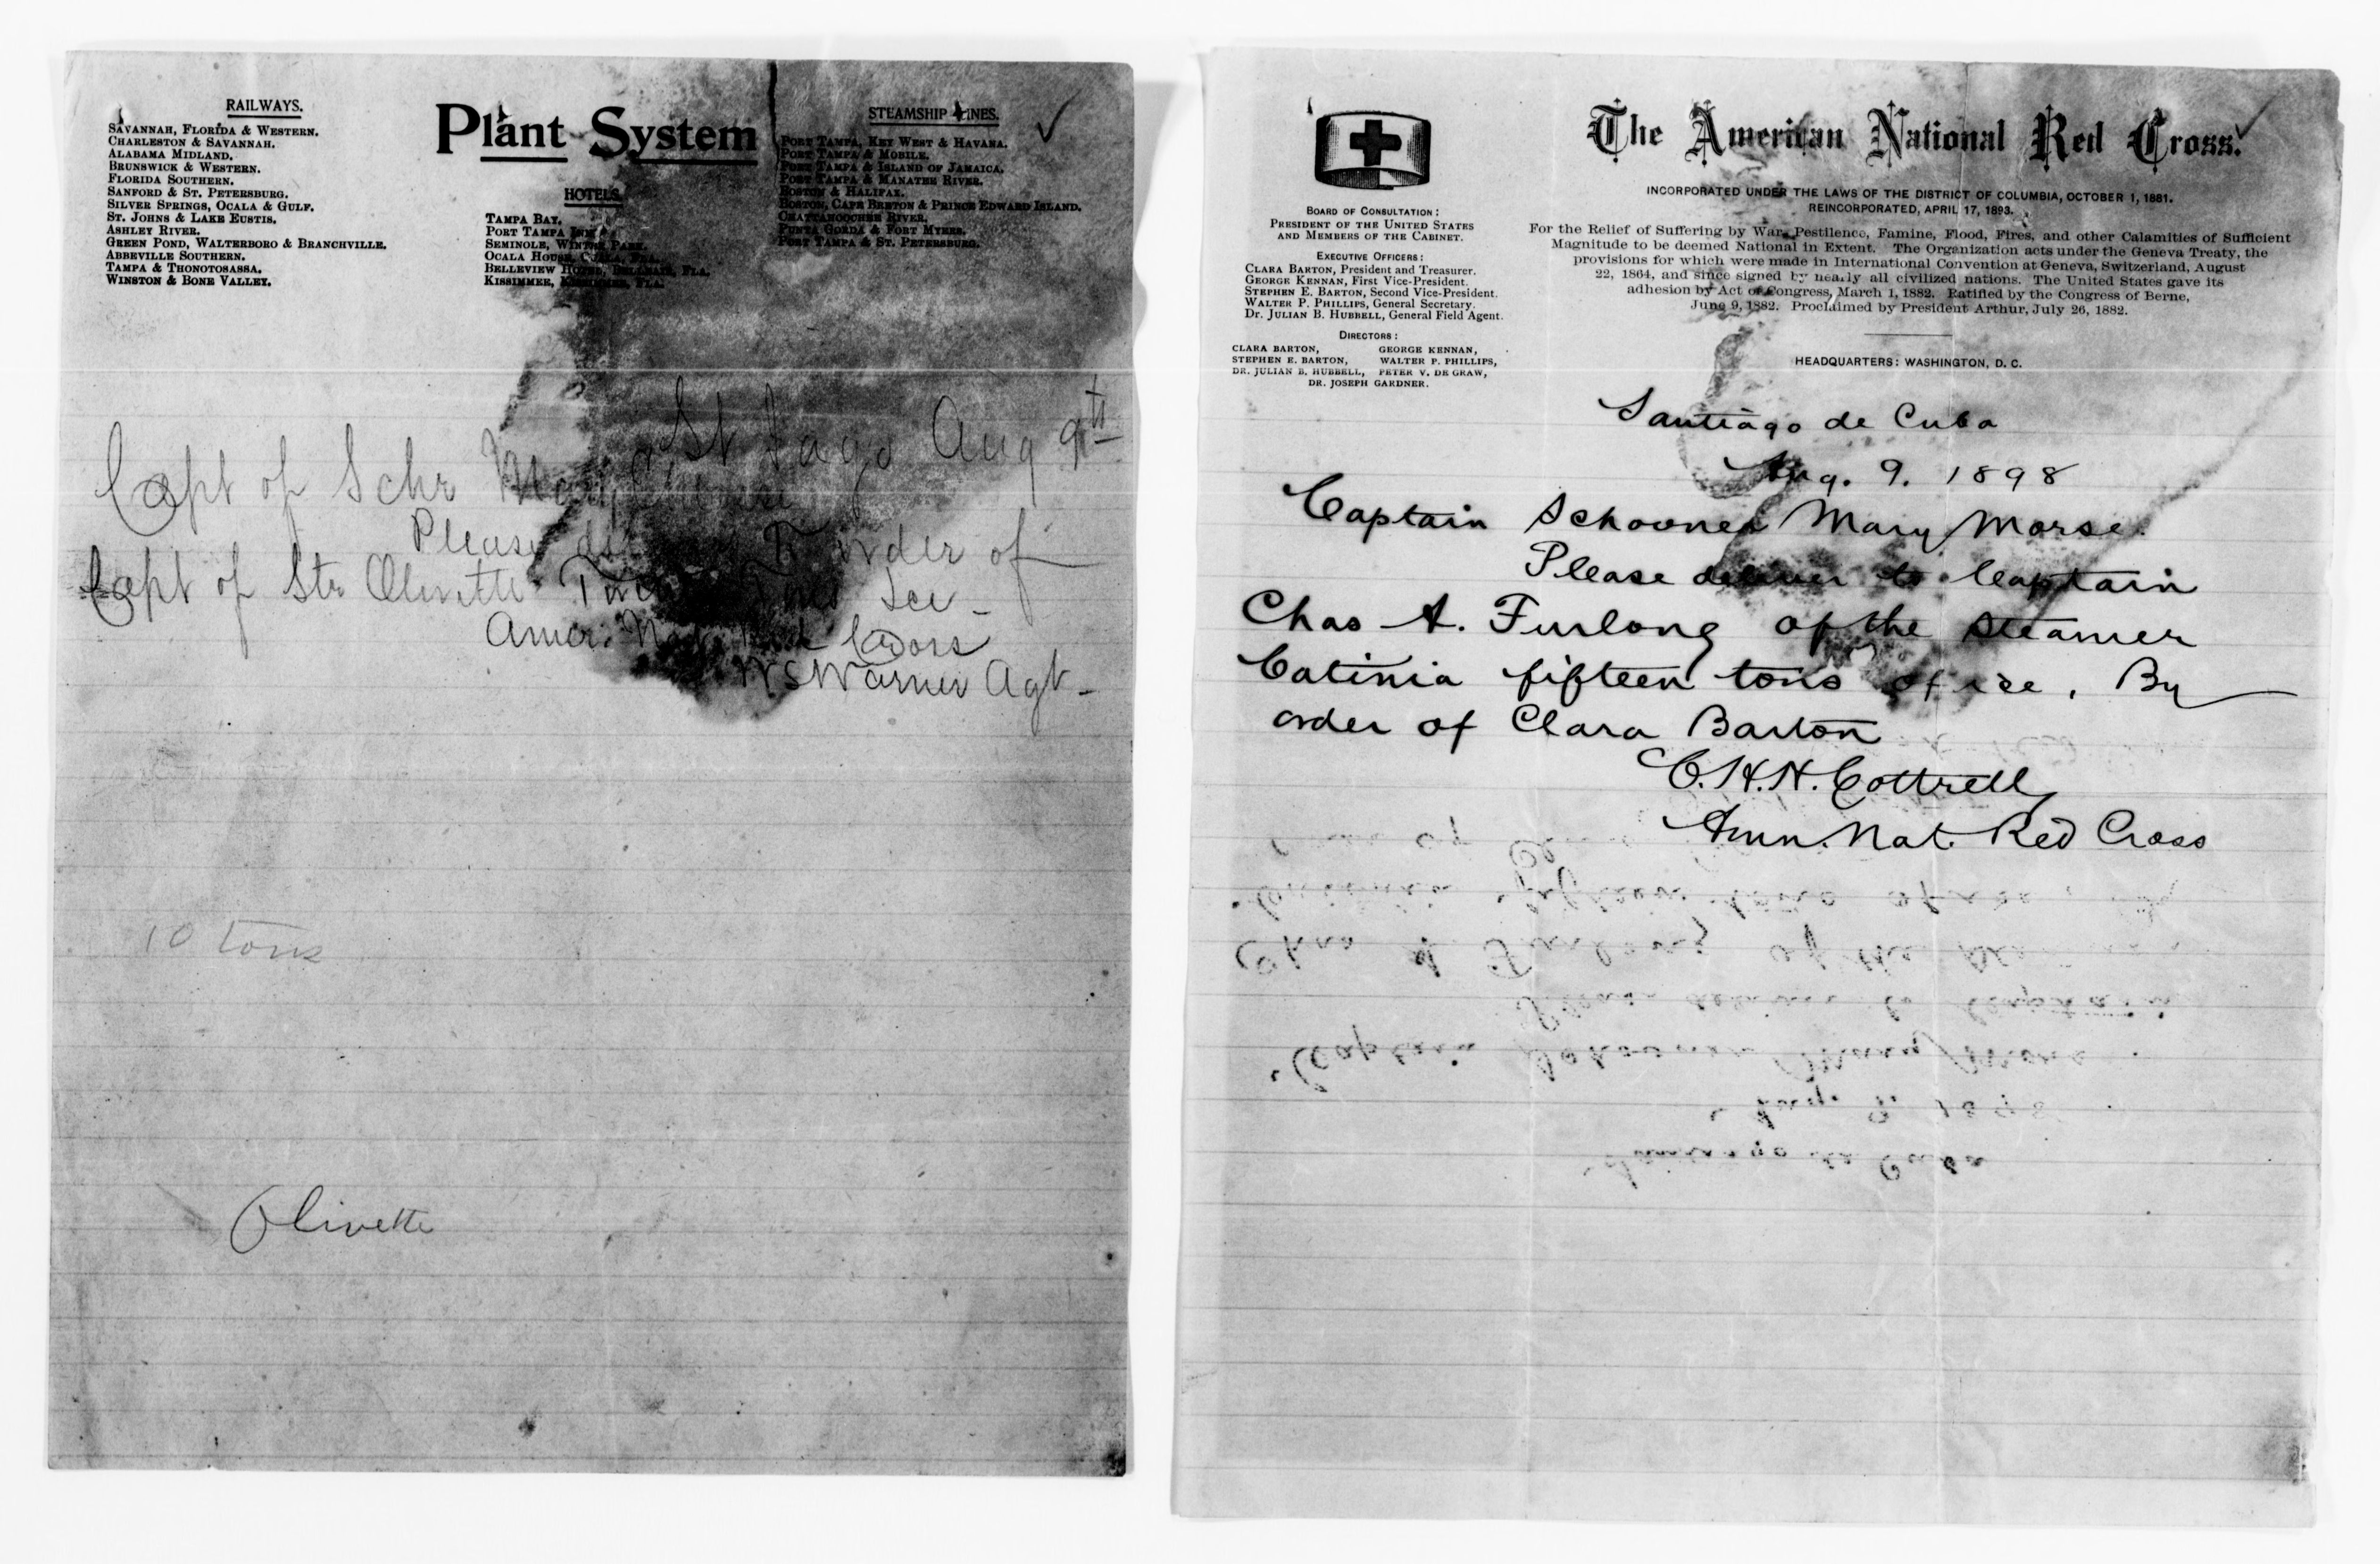 RAILWAYS.
SAVANNAH, FLORIDA & WESTERN.
CHARLESTON & SAVANNAH.
ALABAMA MIDLAND.
BRUNSWICK & WESTERN.
FLORIDA SOUTHERN.
SANFORD & ST. PETERSBURG.
SILVER SPRINGS, OCALA & GULF.
ST. JOHNS & LAKE EUSTIS.
ASHLEY RIVER.
GREEN POND, WALTERBORO & BRANCHVILLE.
ABBEVILLE SOUTHERN.
TAMPA & THONOTOSASSA.
WINSTON & BONE VALLEY.
Plant System
HOTELS.
TAMPA BAY.
PORT TAMPA INN
SEMINOLE, WINTER PARK.
OCALA HOUSE, OCALA, FLA.
BELLEVIEW HOTEL, BELLEAIR, FLA.
KISSIMMEE, KISSIMMEE, FLA.
STEAMSHIP LINES.
PORT TAMPA, KEY WEST & HAVANA.
PORT TAMPA & MOBILE.
PORT TAMPA & ISLAND OF JAMAICA.
PORT TAMPA & MANATEE RIVER.
BOSTON & HALIFAX.
BOSTON, CAPE BRETON & PRINCE EDWARD ISLAND.
CHATTAHOOCHEE RIVER.
PUNTA GORDA & FORT MYERS.
PORT TAMPA & ST. PETERSBURG.
St Jago Aug 9th
Capt of Schr Mary
Please to order of
Capt of Str Olivette Tons Ice
Amer. Nat. Red Cross
WS Warner Agt
10 tons
Olivette
The American National Red Cross.
INCORPORATED UNDER THE LAWS OF THE DISTRICT OF COLUMBIA, OCTOBER 1, 1881.
REINCORPORATED, APRIL 17, 1893.
For the Relief of Suffering by War, Pestilence, Famine, Flood, Fires, and other Calamities of Sufficient
Magnitude to be deemed National in Extent. The Organization acts under the Geneva Treaty, the
provisions for which were made in International Convention at Geneva, Switzerland, August
22, 1864, and since signed by nearly all civilized nations. The United States gave its
adhesion by Act of Congress, March 1, 1882. Ratified by the Congress of Berne,
June 9, 1882. Proclaimed by President Arthur, July 26, 1882.
HEADQUARTERS: WASHINGTON, D. C.
BOARD OF CONSULTATION:
PRESIDENT OF THE UNITED STATES
AND MEMBERS OF THE CABINET.
EXECUTIVE OFFICERS:
CLARA BARTON, President and Treasurer.
GEORGE KENNAN, First Vice-President.
STEPHEN E. BARTON, Second Vice-President.
WALTER P. PHILLIPS, General Secretary.
Dr. JULIAN B. HUBBELL, General Field Agent.
DIRECTORS:
CLARA BARTON, GEORGE KENNAN,
STEPHEN E. BARTON, WALTER P. PHILLIPS,
DR. JULIAN B. HUBBELL, PETER V. DE GRAW,
DR. JOSEPH GARDNER.
Santiago de Cuba
Aug. 9. 1898
Captain Schooner Mary Morse.
Please deliver to Captain
Chas A. Furlong of the steamer
Catinia fifteen tons of ice, By
order of Clara Barton
C.H.H. Cottrell
Amn. Nat. Red Cross